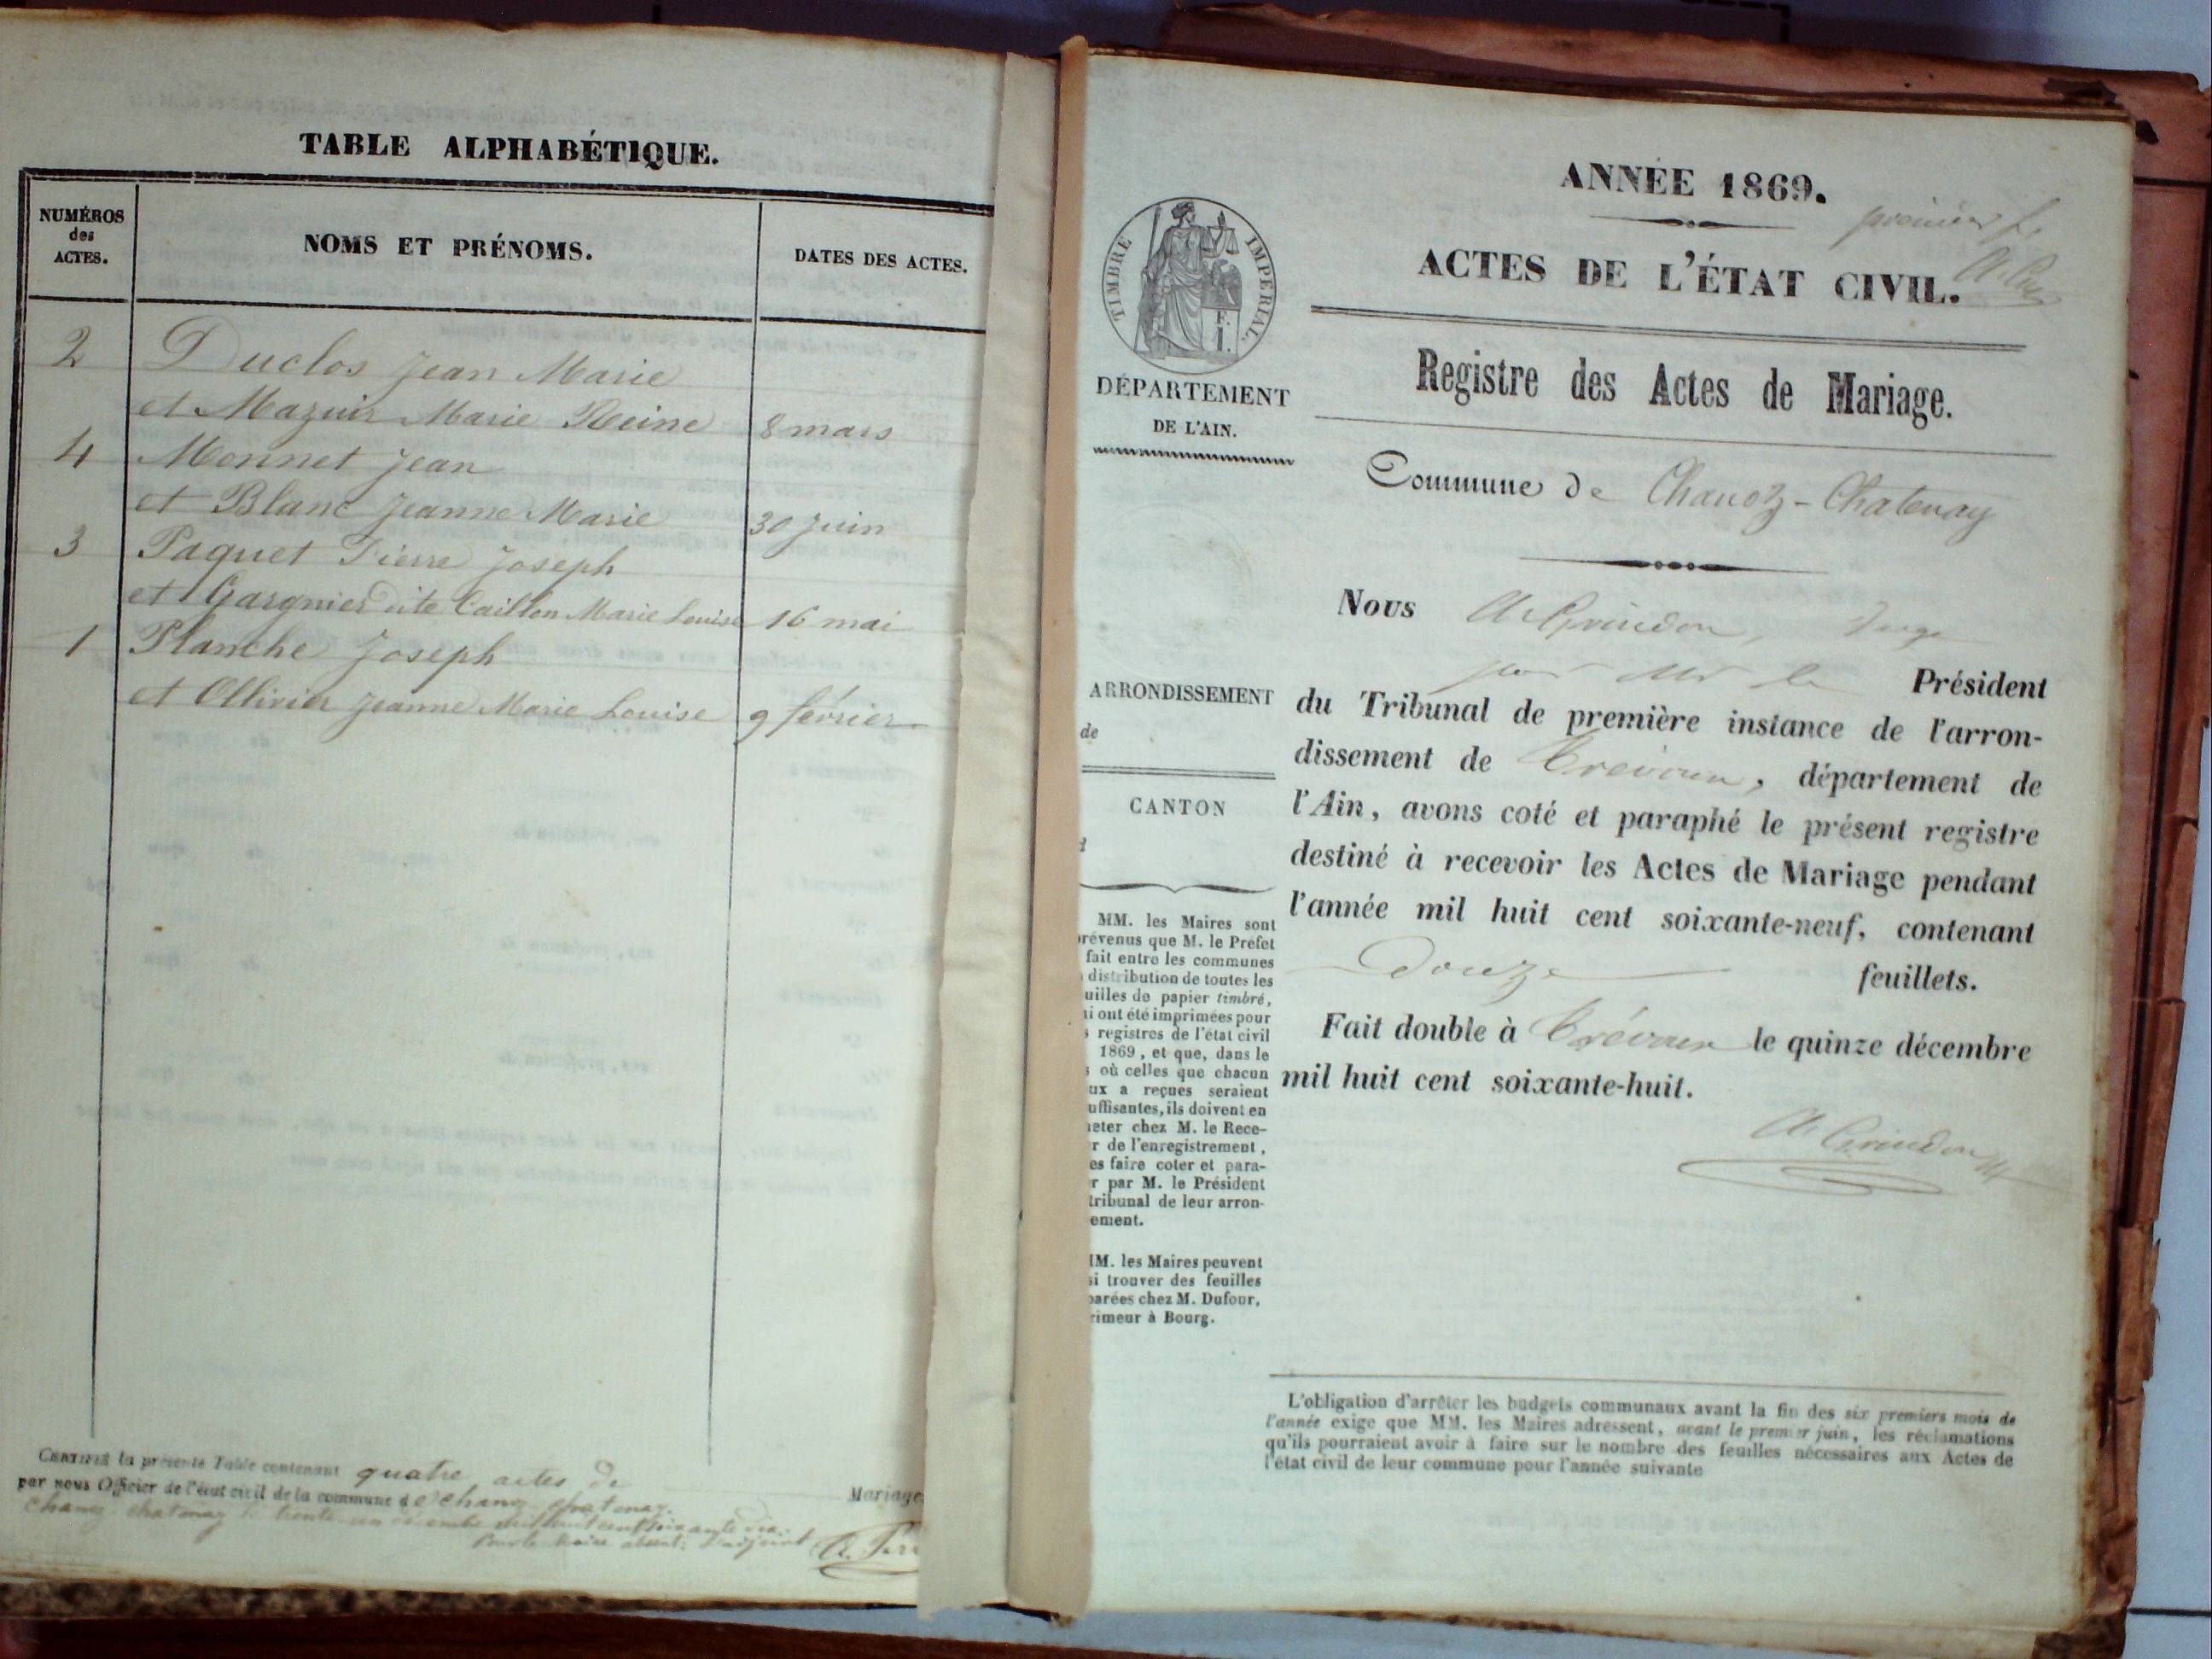 TABLE ALPHABÉTIQUE.
NUMÉROS
des
ACTES.
NOMS ET PRÉNOMS.
DATES DES ACTES.
2 Duclos Jean Marie
et Mazuir Marie Reine 8 mars
4 Monnet Jean
et Blanc Jeanne Marie 30 Juin
3 Paquet Pierre Joseph
et Gargnier dite Caillon Marie Louise 16 mai
1 Planche Joseph
et Ollivier Jeanne Marie Louise 9 février
CERTIFIÉ la présente Table contenant quatre actes de
Mariage
par nous Officier de l'état civil de la commune de chanoz chatenay.
chanoz chatenay le trente un décembre mil huit cent soixante dix.
Pour le Maire absent: L'adjoint
ANNÉE 1869.
premier f.
ACTES DE L'ÉTAT CIVIL.
Registre des Actes de Mariage.
TIMBRE IMPÉRIAL.
DÉPARTEMENT
DE L'AIN.
Commune de Chanoz-Chatenay
Nous A. Grindon, Juge
pour Mr le Président
du Tribunal de première instance de l'arron-
dissement de Trévoux, département de
l'Ain, avons coté et paraphé le présent registre
destiné à recevoir les Actes de Mariage pendant
l'année mil huit cent soixante-neuf, contenant
Douze feuillets.
Fait double à Trévoux le quinze décembre
mil huit cent soixante-huit.
A. Grindon
ARRONDISSEMENT
de
CANTON
MM. les Maires sont
révenus que M. le Préfet
fait entre les communes
distribution de toutes les
uilles de papier timbré,
i ont été imprimées pour
s registres de l'état civil
1869, et que, dans le
s où celles que chacun
ux a reçues seraient
uffisantes, ils doivent en
heter chez M. le Rece-
r de l'enregistrement,
es faire coter et para-
r par M. le Président
tribunal de leur arron-
ement.
MM. les Maires peuvent
si trouver des feuilles
parées chez M. Dufour,
rimeur à Bourg.
L'obligation d'arrêter les budgets communaux avant la fin des six premiers mois de
l'année exige que MM. les Maires adressent, avant le premier juin, les réclamations
qu'ils pourraient avoir à faire sur le nombre des feuilles nécessaires aux Actes de
l'état civil de leur commune pour l'année suivante